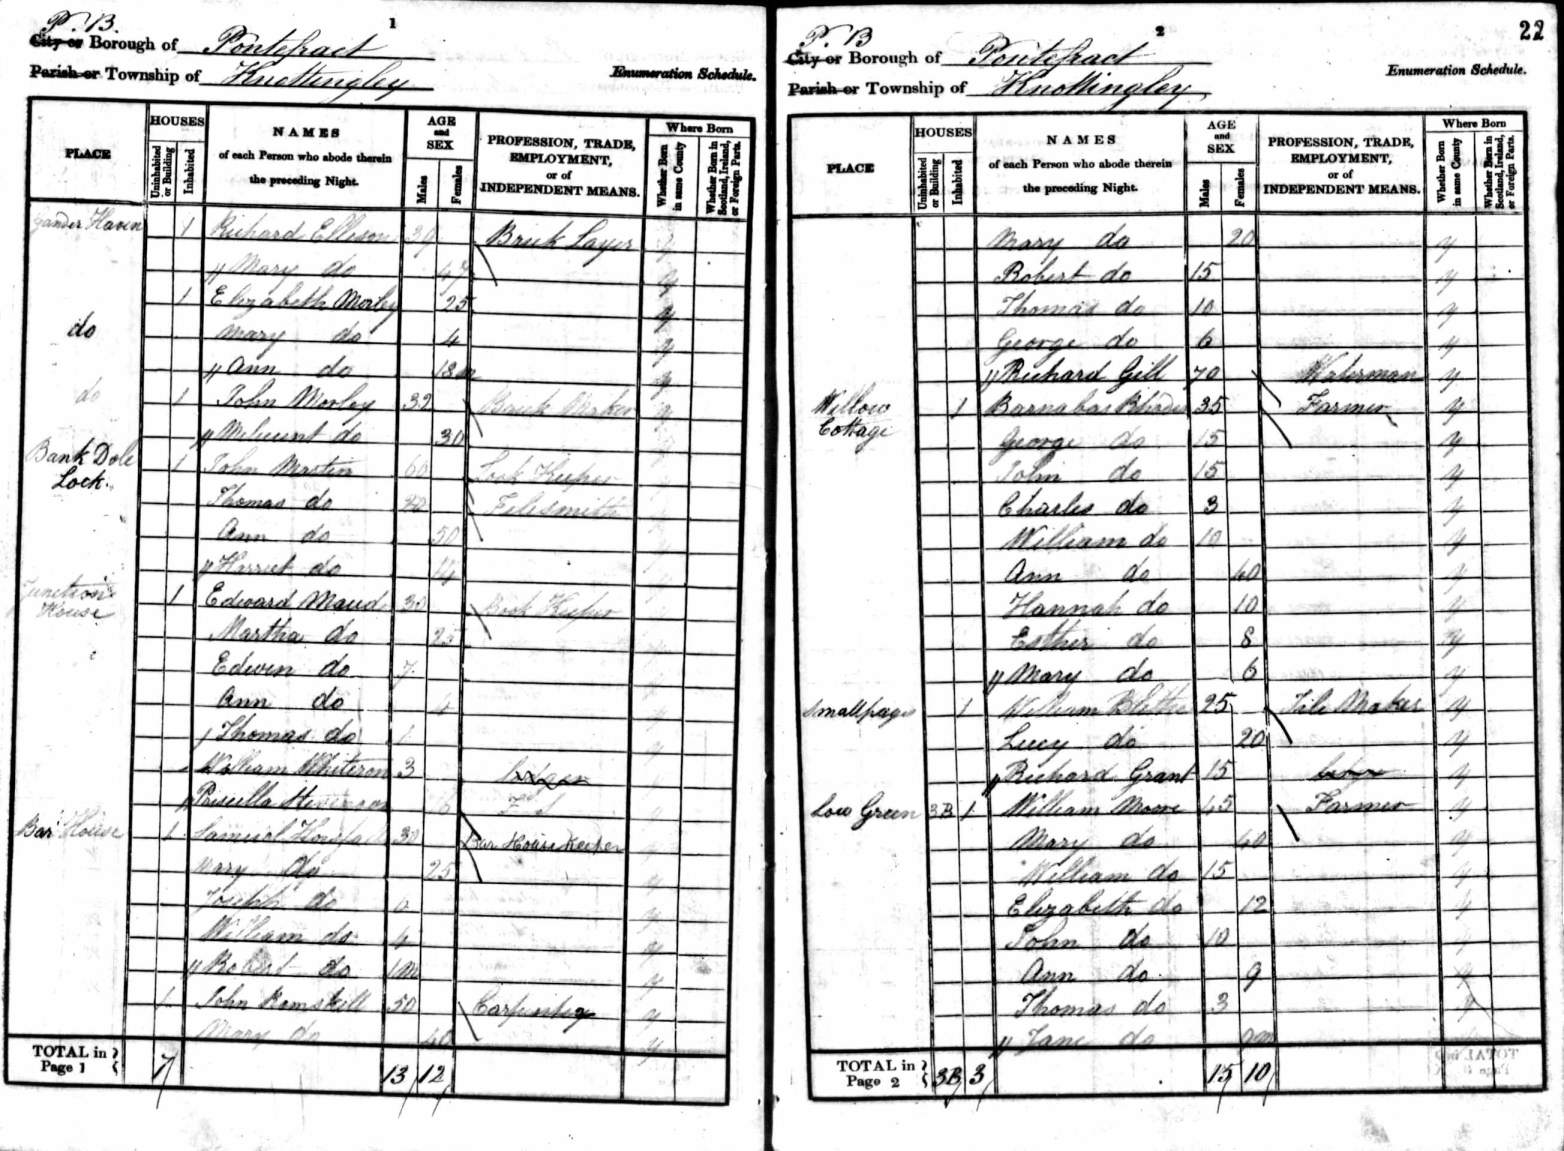 P. B. 1
City or Borough of Pontefract
Parish or Township of Knottingley Enumeration Schedule.
PLACE HOUSES Uninhabited or Building Inhabited NAMES of each Person who abode therein the preceding Night. AGE and SEX Males Females PROFESSION, TRADE, EMPLOYMENT, or of INDEPENDENT MEANS. Where Born Whether Born in same County Whether Born in Scotland, Ireland, or Foreign Parts.
Gander Haven 1 Richard Elleson 39 Brick Layer y
Mary do 47 y
1 Elizabeth Morley 25 y
do Mary do 4 y
Ann do 18m y
do 1 John Morley 32 Bank Maker y
Milicent do 30 y
Bank Dole Lock. 1 John Martin 60 Lock Keeper y
Thomas do Filesmith y
Ann do 50 y
Harriet do 14 y
Junction House 1 Edward Maud 30 Book Keeper y
Martha do 25 y
Edwin do 7 y
Ann do 4 y
Thomas do 1 y
William Whiteron 3 y
Priscilla y
Bar House 1 Samuel 30 Bar House Keeper y
Mary do 25 y
Joseph do 6 y
William do 4 y
Robert do 1m y
1 John Ramskill 50 Carpenter y
Mary do 40 y
TOTAL in Page 1 7 13 12
P. B 2 22
City or Borough of Pontefract
Parish or Township of Knottingley Enumeration Schedule.
PLACE HOUSES Uninhabited or Building Inhabited NAMES of each Person who abode therein the preceding Night. AGE and SEX Males Females PROFESSION, TRADE, EMPLOYMENT, or of INDEPENDENT MEANS. Where Born Whether Born in same County Whether Born in Scotland, Ireland, or Foreign Parts.
Mary do 20 y
Robert do 15 y
Thomas do 10 y
George do 6 y
Richard Gill 70 Waterman y
Willow Cottage 1 Barnabas Rhodes 35 Farmer y
George do 15 y
John do 15 y
Charles do 3 y
William do 10 y
Ann do 40 y
Hannah do 10 y
Esther do 8 y
Mary do 6 y
Smallpage 1 William 25 Tile Maker y
Lucy do 20 y
Richard Grant 15 y
Low Green 3B 1 William Moore 45 Farmer y
Mary do 40 y
William do 15 y
Elizabeth do 12 y
John do 10 y
Ann do 9 y
Thomas do 3 y
Jane do 9m
TOTAL in Page 2 3B 3 15 10